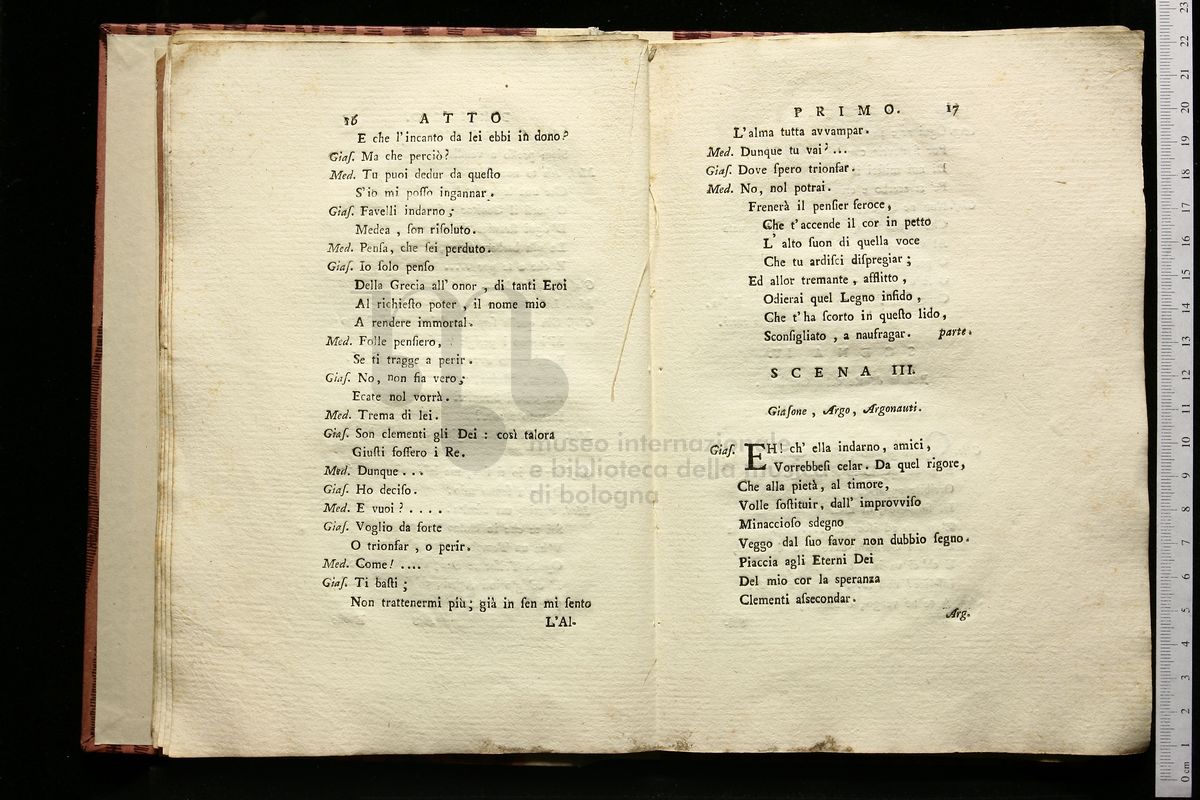 16 ATTO
E che l'incanto da lei ebbi in dono?
Giaſ. Ma che perciò?
Med. Tu puoi dedur da queſto
S'io mi poſſo ingannar.
Giaſ. Favelli indarno;
Medea, ſon riſoluto.
Med. Penſa, che ſei perduto.
Giaſ. Io ſolo penſo
Della Grecia all'onor, di tanti Eroi
Al richieſto poter, il nome mio
A rendere immortal.
Med. Folle penſiero,
Se ti tragge a perir.
Giaſ. No, non fia vero;
Ecate nol vorrà.
Med. Trema di lei.
Giaſ. Son clementi gli Dei: così talora
Giuſti foſſero i Re.
Med. Dunque...
Giaſ. Ho deciſo.
Med. E vuoi?....
Giaſ. Voglio da forte
O trionfar, o perir.
Med. Come!....
Giaſ. Ti baſti;
Non trattenermi più; già in ſen mi ſento
L'Al-
PRIMO. 17
L'alma tutta avvampar.
Med. Dunque tu vai?...
Giaſ. Dove ſpero trionfar.
Med. No, nol potrai.
Frenerà il penſier feroce,
Che t'accende il cor in petto
L'alto ſuon di quella voce
Che tu ardiſci diſpregiar;
Ed allor tremante, afflitto,
Odierai quel Legno infido,
Che t'ha ſcorto in queſto lido,
Sconſigliato, a naufragar. parte.
SCENA III.
Giaſone, Argo, Argonauti.
Giaſ. EH! ch'ella indarno, amici,
Vorrebbeſi celar. Da quel rigore,
Che alla pietà, al timore,
Volle ſoſtituir, dall'improvviſo
Minaccioſo sdegno
Veggo dal ſuo favor non dubbio ſegno.
Piaccia agli Eterni Dei
Del mio cor la speranza
Clementi aſsecondar.
Arg.
museo internazionale
e biblioteca della musica
di bologna
0 cm 1 2 3 4 5 6 7 8 9 10 11 12 13 14 15 16 17 18 19 20 21 22 23